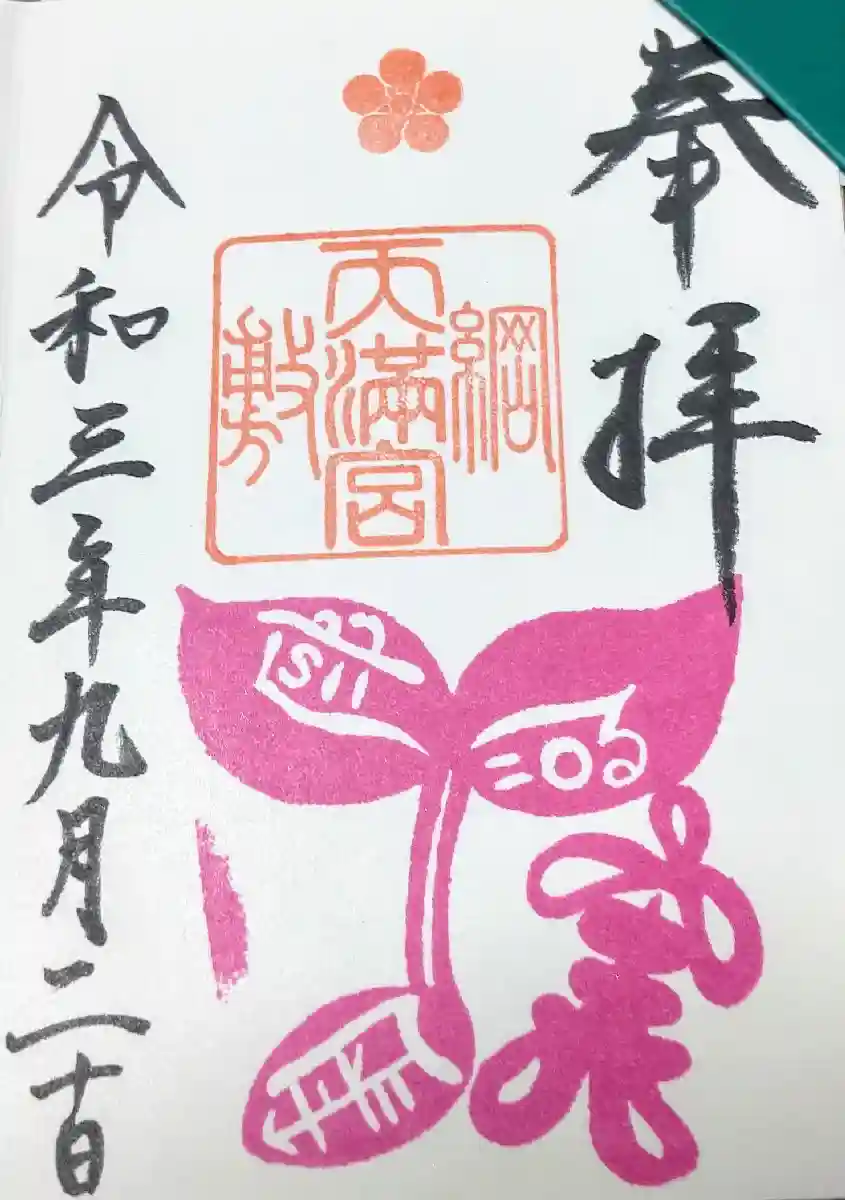 奉拝
綱敷天満宮
令和三年九月二十日